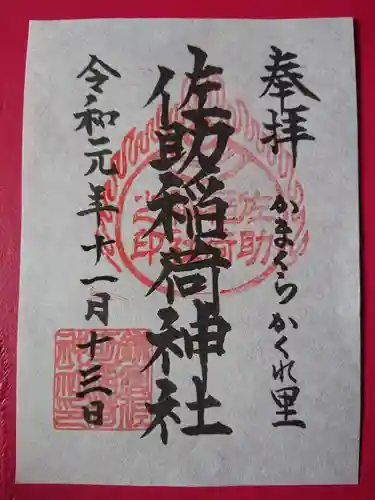 奉拝
かまくらかくれ里
佐助稲荷神社
令和元年十一月十三日